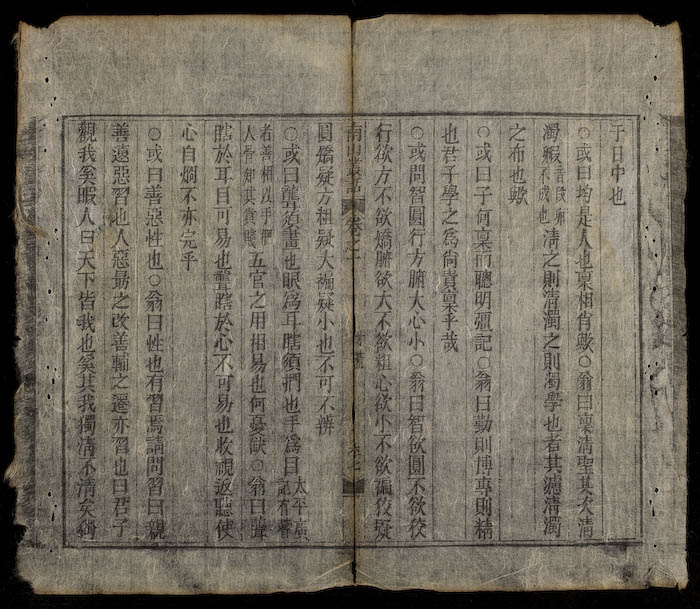 于日中也
○或曰均是人也稟相肖歟○翁曰稟清聖其人清
濁嘏清之則清濁之則濁學也者其漉清濁
不成也
之布也歟
○或曰子何稟而聰明彊記○翁曰勤則博專則精
也君子學之為尚責稟乎哉
○或問智圓行方膽大心小○翁曰智欲圓不欲狡
行欲方不欲矯膽欲大不欲粗心欲小不欲褊狡疑
圓矯疑方粗疑大褊疑小也不可不辨
○或曰聾須畫也眼為耳瞎須捫也手為目
太平廣
記有瞽
者善相以手捫
人骨知其貴賤
五官之用相易也何憂缺○翁曰聾
瞎於耳目可易也聾瞎於心不可易也收視返聽使
心自烱不亦完乎
○或曰善惡性也○翁曰性也有習焉請問習曰親
善遠惡習也人惡勗之改善輔之遷亦習也曰君子
觀我奚暇人曰天下皆我也奚其我獨清不清矣獨